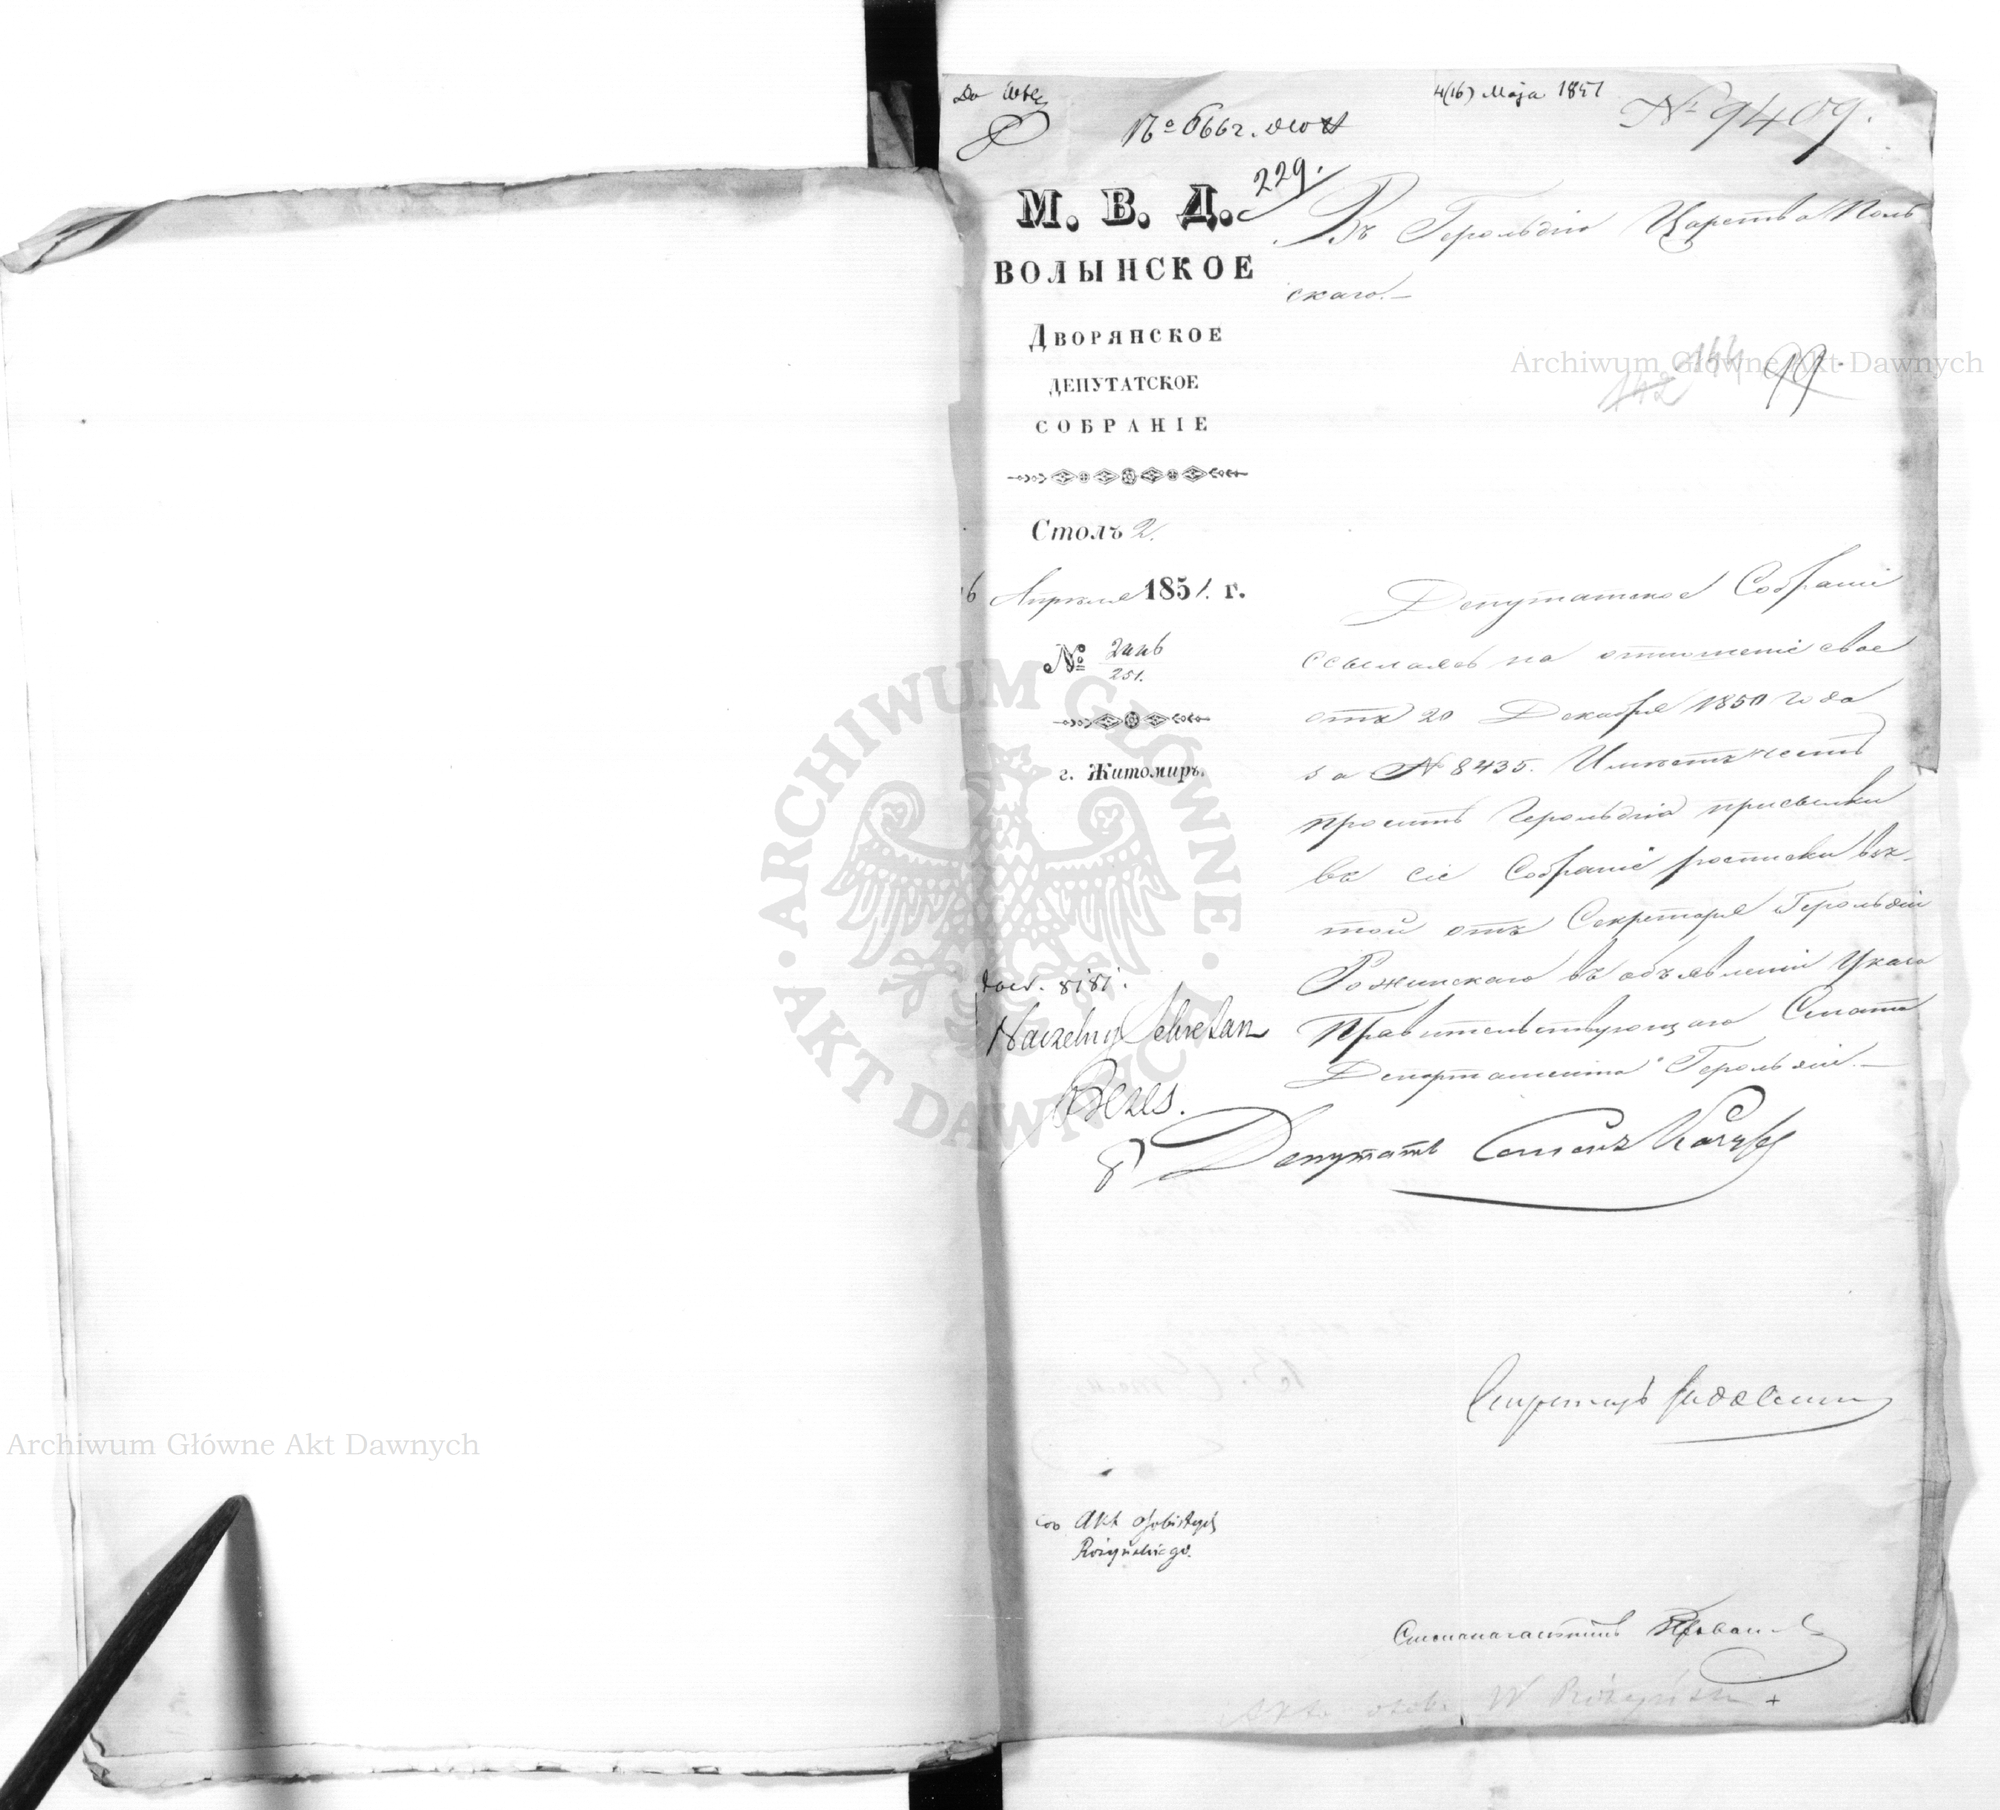 4(16) Maja 1851
№ 9409.
229.
М. В. Д.
ВОЛЫНСКОЕ
Дворянское
депутатское
СОБРАНІЕ
Столъ 2.
16 Апреля 1851. г.
№ 2446
251.
г. Житомиръ.
Въ Герольдію Царства Поль
скаго.—
142 144 99.
Депутатское Собраніе
ссылаясь на отношеніе свое
отъ 20 Декабря 1850 года
за № 8435. Имѣетъ честь
просить Герольдію присылки
въ сіе Собраніе росписки взя-
той отъ Секретаря Герольдіи
Рожинскаго въ объявленіи Указа
Правительствующаго Сената
Департамента Герольдіи.—
Naczelny Sekretarz
Депутатъ Семенъ
Секретарь
Akt osobistych
Rożyńskiego.
Столоначальникъ
Akta osob. W Rożyński +
Archiwum Główne Akt Dawnych
Archiwum Główne Akt Dawnych
ARCHIWUM GŁÓWNE AKT DAWNYCH